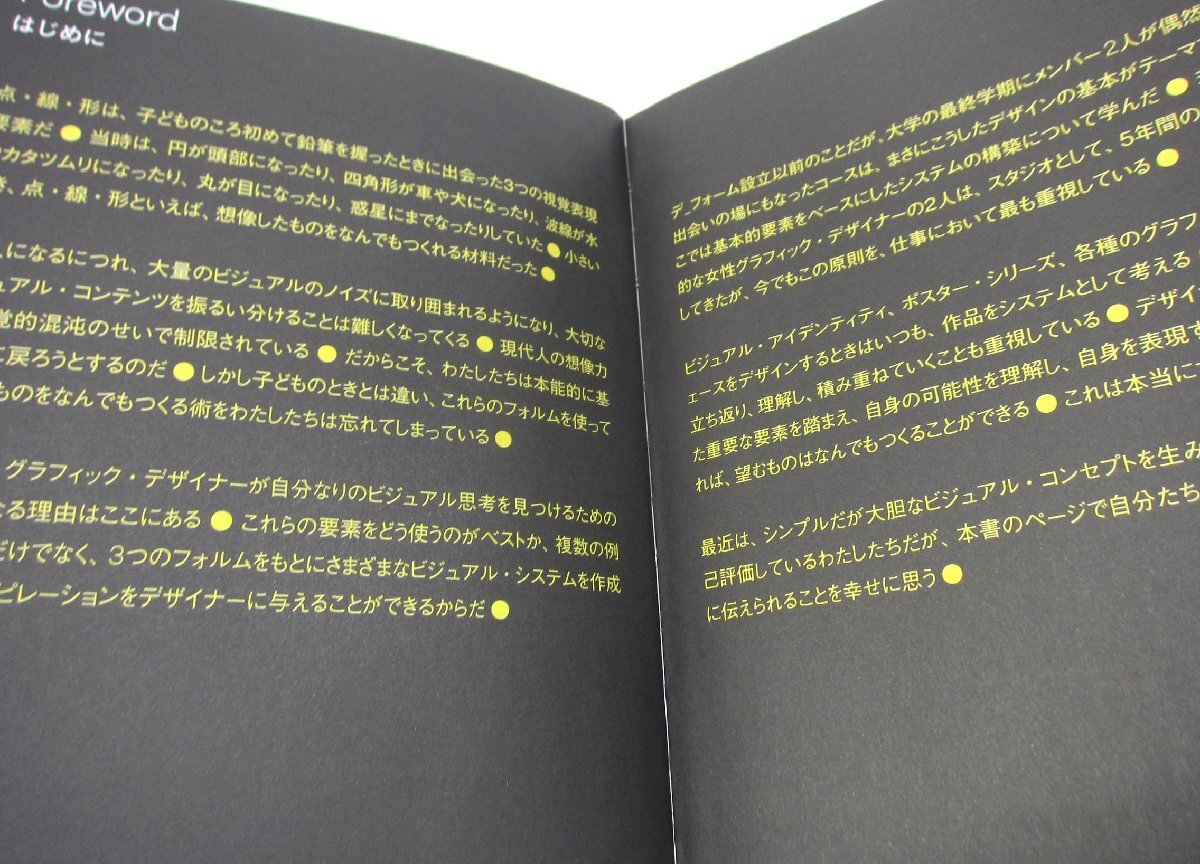 Foreword
はじめに
点・線・形は、子どものころ初めて鉛筆を握ったときに出会った3つの視覚表現
要素だ ● 当時は、円が頭部になったり、四角形が車や犬になったり、波線が水
カタツムリになったり、丸が目になったり、惑星にまでなったりしていた ● 小さい
、点・線・形といえば、想像したものをなんでもつくれる材料だった ●
になるにつれ、大量のビジュアルのノイズに取り囲まれるようになり、大切な
ュアル・コンテンツを振るい分けることは難しくなってくる ● 現代人の想像力
覚的混沌のせいで制限されている ● だからこそ、わたしたちは本能的に基
に戻ろうとするのだ ● しかし子どものときとは違い、これらのフォルムを使って
ものをなんでもつくる術をわたしたちは忘れてしまっている ●
グラフィック・デザイナーが自分なりのビジュアル思考を見つけるための
なる理由はここにある ● これらの要素をどう使うのがベストか、複数の例
だけでなく、3つのフォルムをもとにさまざまなビジュアル・システムを作成
ピレーションをデザイナーに与えることができるからだ ●
デ_フォーム設立以前のことだが、大学の最終学期にメンバー2人が偶然
出会いの場にもなったコースは、まさにこうしたデザインの基本がテーマ
こでは基本的要素をベースにしたシステムの構築について学んだ ●
的な女性グラフィック・デザイナーの2人は、スタジオとして、5年間の
してきたが、今でもこの原則を、仕事において最も重視している ●
ビジュアル・アイデンティティ、ポスター・シリーズ、各種のグラフ
ェースをデザインするときはいつも、作品をシステムとして考える
立ち返り、理解し、積み重ねていくことも重視している ● デザイ
た重要な要素を踏まえ、自身の可能性を理解し、自身を表現す
れば、望むものはなんでもつくることができる ● これは本当に
最近は、シンプルだが大胆なビジュアル・コンセプトを生み
己評価しているわたしたちだが、本書のページで自分たち
に伝えられることを幸せに思う ●